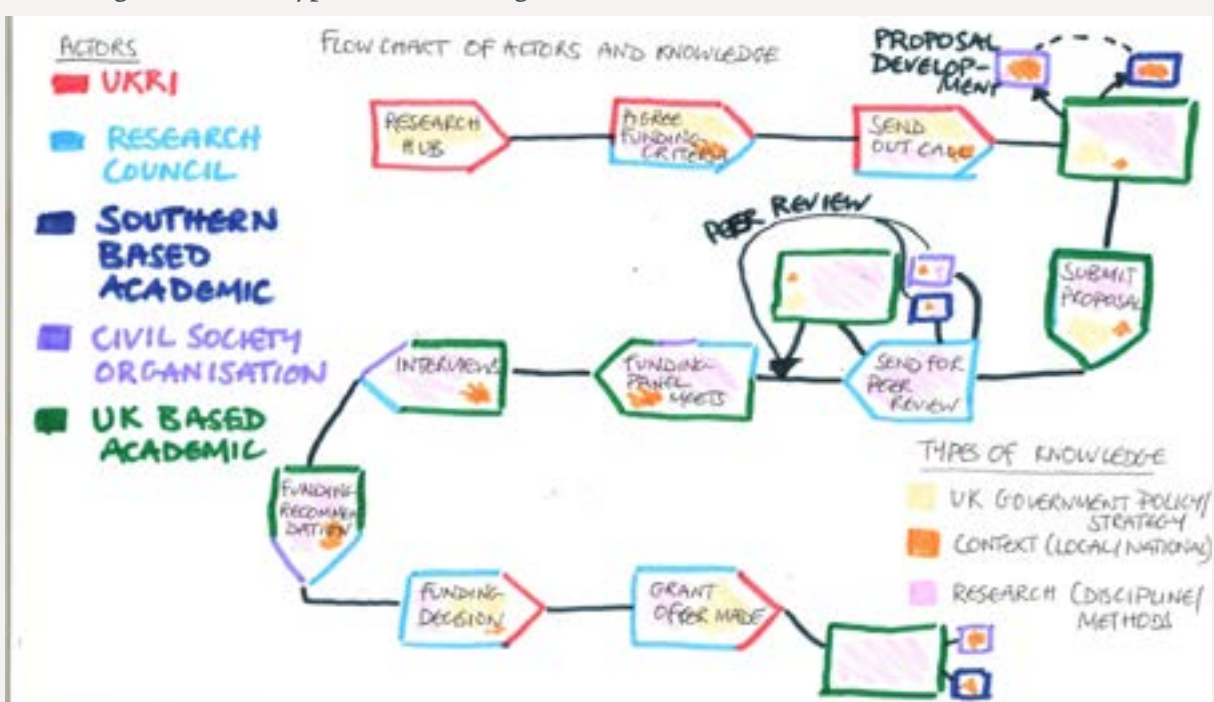 ACTORS
UKRI
RESEARCH
COUNCIL
SOUTHERN
BASED
ACADEMIC
CIVIL SOCIETY
ORGANISATION
UK BASED
ACADEMIC
FLOW CHART OF ACTORS AND KNOWLEDGE
RESEARCH
HUB
AGREE
FUNDING
CRITERIA
SEND
OUT CALL
PROPOSAL
DEVELOP-
MENT
SUBMIT
PROPOSAL
PEER REVIEW
SEND FOR
PEER
REVIEW
FUNDING
PANEL
MEETS
INTERVIEWS
FUNDING
RECOMMEN
DATION
FUNDING
DECISION
GRANT
OFFER MADE
TYPES OF KNOWLEDGE
UK GOVERNMENT POLICY/
STRATEGY
CONTEXT (LOCAL/NATIONAL)
RESEARCH (DISCIPLINE/
METHODS